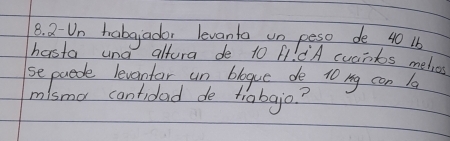 8.2-Un trabajador levanta un peso de 40 lb
hasta una altura de 10 ft. ¿A cuántos metros
se puede levantar un bloque de 10 kg con la
misma cantidad de trabajo.?